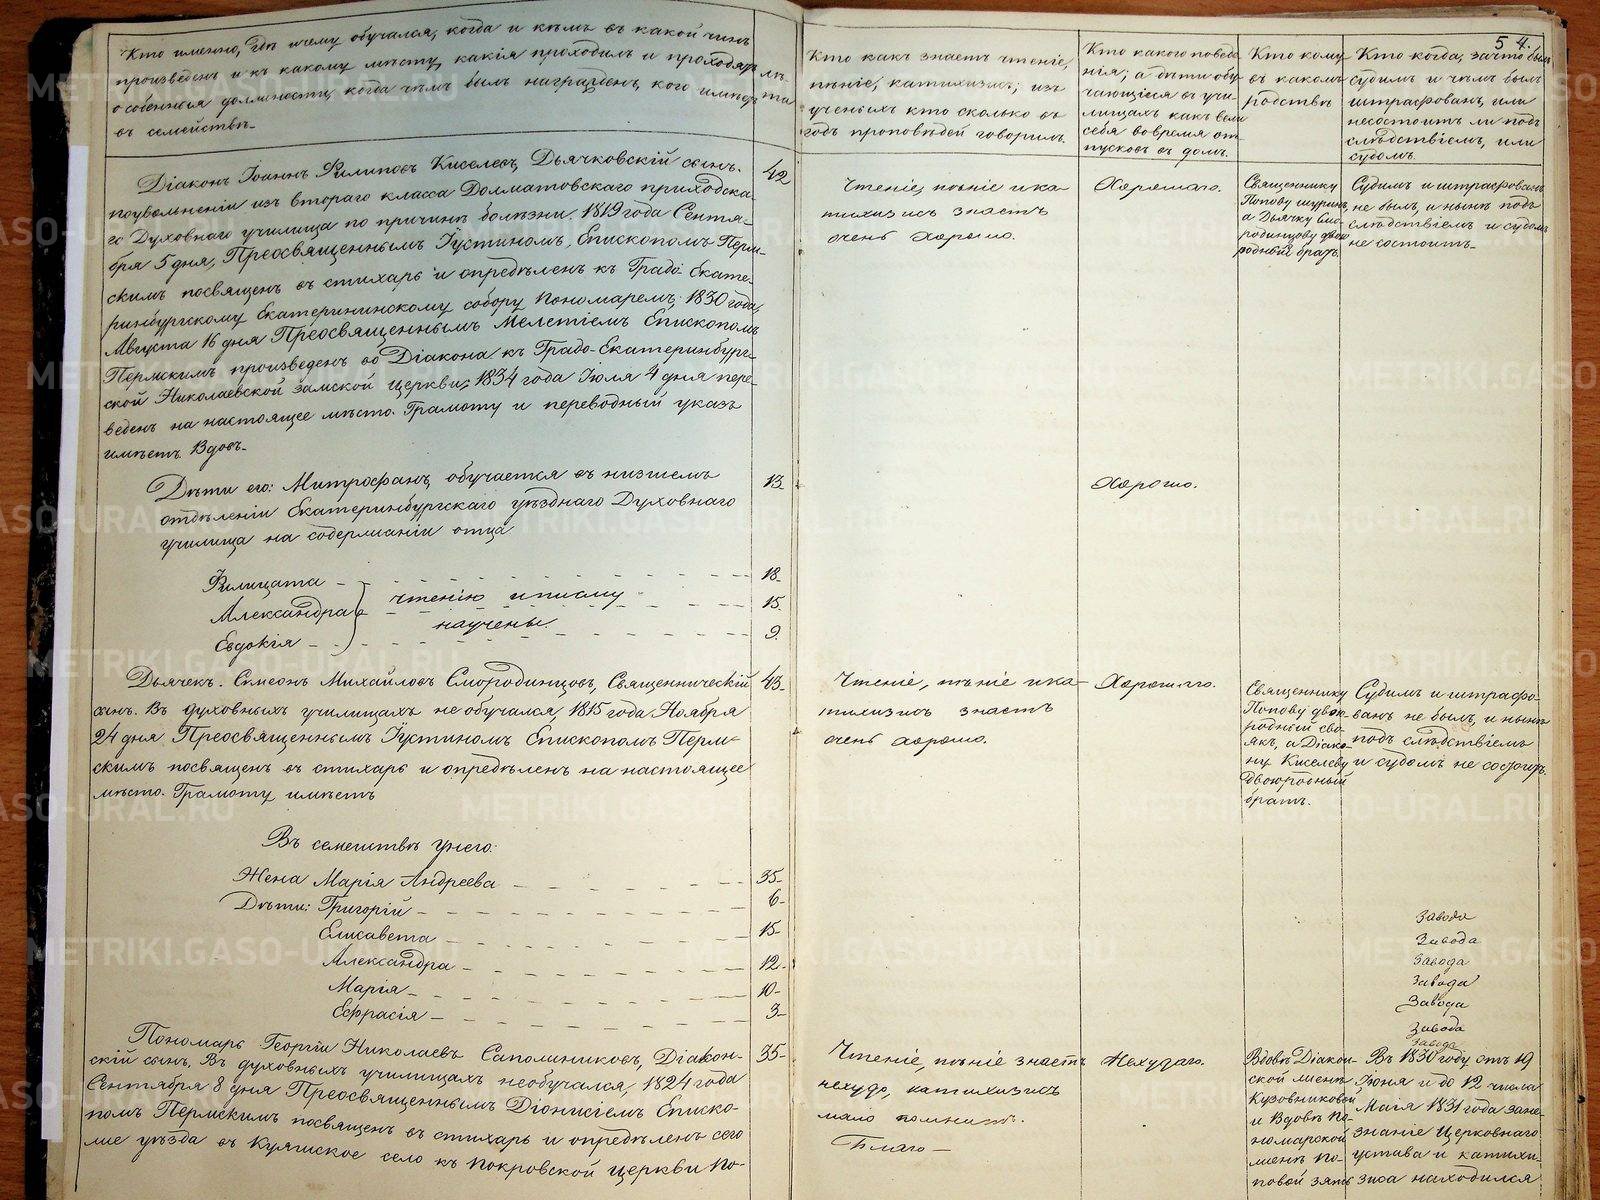 Кто именно, гдѣ и чему обучался, когда и кѣмъ въ какой чинъ
произведенъ и къ какому мѣсту, какія проходилъ и проходитъ
особенныя должности, когда чѣмъ былъ награжденъ, кого имѣетъ
въ семействѣ.
лѣта
Кто какъ знаетъ чтеніе,
пѣніе, катихизисъ; изъ
ученыхъ кто сколько въ
годъ проповѣдей говорилъ.
Кто какого поведе
нія; а дѣти обу
чающіеся въ учи-
лищахъ какъ вели
себя вовремя от-
пусковъ въ домъ.
Кто кому
въ какомъ
родствѣ
54.
Кто когда, за что былъ
судимъ и чѣмъ былъ
штрафованъ, или
несостоитъ ли подъ
слѣдствіемъ, или
судомъ.
Діаконъ Іоаннъ Филиповъ Киселевъ, Дьячковскій сынъ.
поувольненіи изъ втораго класса Долматовскаго приходска-
го Духовнаго училища по причинѣ болѣзни, 1819 года Сентя-
бря 5 дня, Преосвященнымъ Іустиномъ, Епископомъ Перм-
скимъ посвященъ въ стихарь и опредѣленъ къ Градо Екате-
ринбургскому Екатерининскому собору Пономаремъ; 1830 года,
Августа 16 дня Преосвященнымъ Мелетіемъ Епископомъ
Пермскимъ произведенъ во Діакона къ Градо-Екатеринбург-
ской Николаевской замской церкви; 1834 года Іюля 4 дня пере-
веденъ на настоящее мѣсто. Грамоту и переводный указъ
имѣетъ. Вдовъ.
42
Чтеніе, пѣніе и ка-
тихизисъ знаетъ
очень хорошо.
Хорошаго.
Священнику
Попову шуринъ,
а Дьячку Смо-
родинцову двою
родный братъ.
Судимъ и штрафованъ
не былъ, и нынѣ подъ
слѣдствіемъ и судомъ
не состоитъ.
Дѣти его: Митрофанъ, обучается въ низшемъ
отдѣленіи Екатеринбургскаго уѣзднаго Духовнаго
училища на содержаніи отца
13.
Хорошо.
Филицата 18.
Александра 15.
Евдокія 9.
чтенію и письму
научены.
Дьячекъ. Симеонъ Михайловъ Смородинцовъ, Священническій
сынъ. Въ духовныхъ училищахъ не обучался, 1815 года Ноября
24 дня Преосвященнымъ Іустиномъ Епископомъ Перм-
скимъ посвященъ въ стихарь и опредѣленъ на настоящее
мѣсто. Грамоту имѣетъ
43.
Чтеніе, пѣніе и ка-
тихизисъ знаетъ
очень хорошо.
Хорошаго.
Священнику
Попову двою-
родный сво-
якъ, а Діако-
ну Киселеву
двоюродный
братъ.
Судимъ и штрафо-
ванъ не былъ, и нынѣ
подъ слѣдствіемъ
и судомъ не состоитъ.
Въ семействѣ у него:
Жена Марія Андреева 35.
Дѣти: Григорій 6.
Елисавета 15.
Александра 12.
Марія 10.
Евфрасія 3.
Завода
Завода
Завода
Завода
Завода
Завода
Завода
Пономарь Георгій Николаевъ Сапожниковъ, Діакон-
скій сынъ, Въ духовныхъ училищахъ необучался, 1824 года
Сентября 8 дня Преосвященнымъ Діонисіемъ Еписко-
помъ Пермскимъ посвященъ въ стихарь и опредѣленъ сего
же уѣзда въ Куяшское село къ Покровской церкви По-
35.
Чтеніе, пѣніе знаетъ
нехудо, катихизисъ
мало помнитъ.
Благо-
Нехудаго.
Вдовѣ Діакон-
ской женѣ
Кузовниковой
и Вдовѣ По-
номарской
женѣ По-
повой зять
Въ 1830 году отъ 19
Іюня и до 12 числа
Маія 1831 года за не-
знаніе Церковнаго
устава и катихи-
зиса находился